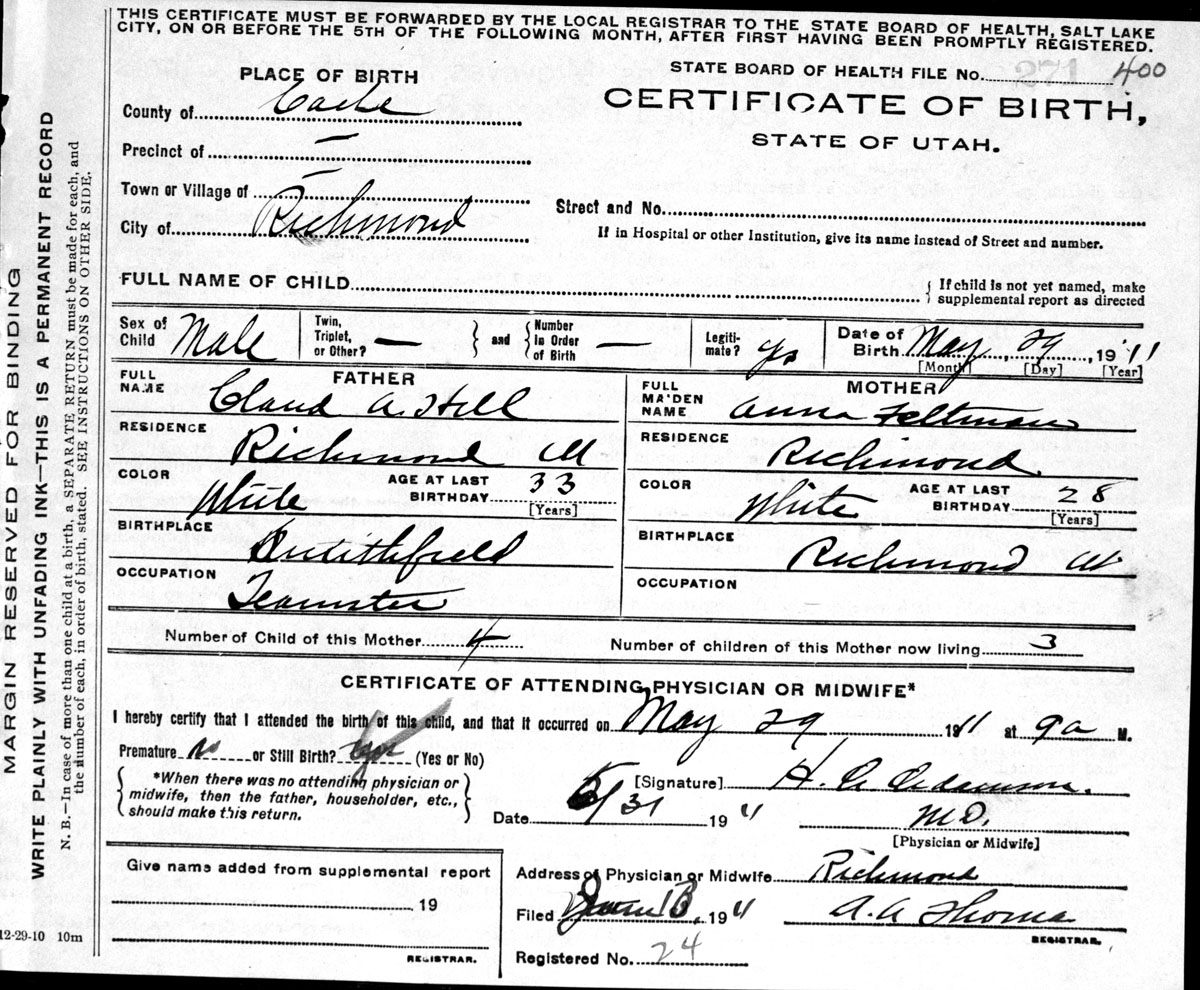 THIS CERTIFICATE MUST BE FORWARDED BY THE LOCAL REGISTRAR TO THE STATE BOARD OF HEALTH, SALT LAKE
CITY, ON OR BEFORE THE 5TH OF THE FOLLOWING MONTH, AFTER FIRST HAVING BEEN PROMPTLY REGISTERED.
STATE BOARD OF HEALTH FILE No. 271 400
PLACE OF BIRTH
CERTIFICATE OF BIRTH,
STATE OF UTAH.
County of Cache
Precinct of —
Town or Village of —
City of Richmond
Street and No.
If in Hospital or other Institution, give its name instead of Street and number.
FULL NAME OF CHILD
If child is not yet named, make
supplemental report as directed
Sex of Child Male
Twin, Triplet, or Other? —
and
Number in Order of Birth —
Legiti-mate? Yes
Date of Birth May, 29, 1911
[Month] [Day] [Year]
FATHER
FULL NAME Claud A. Hill
RESIDENCE Richmond Ut
COLOR White
AGE AT LAST BIRTHDAY 33
[Years]
BIRTHPLACE Smithfield
OCCUPATION Teamster
MOTHER
FULL MAIDEN NAME Anna Feltman
RESIDENCE Richmond
COLOR White
AGE AT LAST BIRTHDAY 28
[Years]
BIRTHPLACE Richmond Ut
OCCUPATION
Number of Child of this Mother 4
Number of children of this Mother now living 3
CERTIFICATE OF ATTENDING PHYSICIAN OR MIDWIFE*
I hereby certify that I attended the birth of this child, and that it occurred on May 29 1911 at 9a M.
Premature No or Still Birth? Yes (Yes or No)
*When there was no attending physician or
midwife, then the father, householder, etc.,
should make this return.
[Signature] H. A. Adamson.
Date 5/31 1911
M.D.
[Physician or Midwife]
Address of Physician or Midwife Richmond
Filed June 1911
A. A. Thomas
REGISTRAR.
Registered No. 24
Give name added from supplemental report
19
REGISTRAR.
MARGIN RESERVED FOR BINDING
WRITE PLAINLY WITH UNFADING INK—THIS IS A PERMANENT RECORD
N. B.—In case of more than one child at a birth, a SEPARATE RETURN must be made for each, and
the number of each, in order of birth, stated. SEE INSTRUCTIONS ON OTHER SIDE.
12-29-10 10m